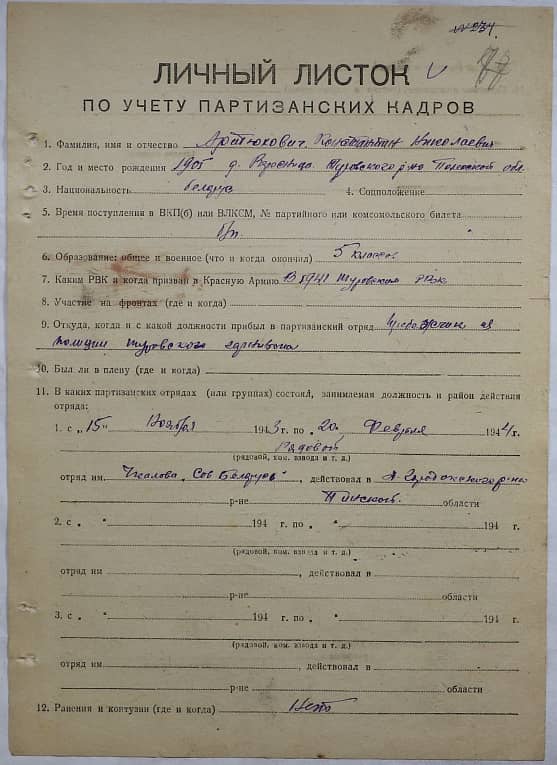 № 234
ЛИЧНЫЙ ЛИСТОК V 77
ПО УЧЕТУ ПАРТИЗАНСКИХ КАДРОВ
1. Фамилия, имя и отчество Артюхович Константин Николаевич
2. Год и место рождения 1905 д. Туровского р-на Полесской обл.
3. Национальность белорус 4. Соцположение
5. Время поступления в ВКП(б) или ВЛКСМ, № партийного или комсомольского билета
б/п
6. Образование: общее и военное (что и когда окончил) 5 классов
7. Каким РВК и когда призван в Красную Армию В 1941 Туровским РВК
8. Участие на фронтах (где и когда)
9. Откуда, когда и с какой должности прибыл в партизанский отряд из
полиции туровского гарнизона
10. Был ли в плену (где и когда)
11. В каких партизанских отрядах (или группах) состоял, занимаемая должность и район действия
отряда:
1. с „15" Ноября 1943 г. по „20 Февраля 1944 г.
Рядовой
(рядовой, ком. взвода и т. д.)
отряд им Чкалова „Сов Беларусь", действовал в Д-Городокского р-на
р-не Пинской области
2. с „ " 194 г. по „ " 194 г.
(рядовой, ком. взвода и т. д.)
отряд им , действовал в
р-не области
3. с „ " 194 г. по „ " 194 г.
(рядовой, ком. взвода и т. д.)
отряд им , действовал в
р-не области
12. Ранения и контузии (где и когда) Нет